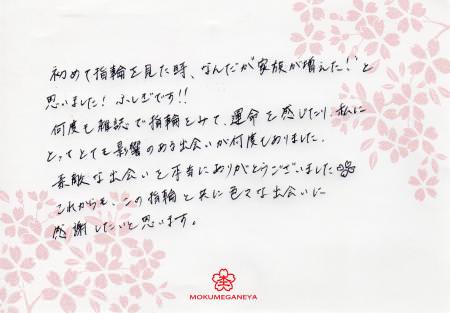 初めて指輪を見た時、なんだが家族が増えた!と
思いました! ふしぎです!!
何度も雑誌で指輪をみて、運命を感じたり、私に
とってとても影響のある出会いが何度もありました。
素敵な出会いを本当にありがとうございました
これからも、この指輪と共に色々な出会いに
感謝したいと思います。
MOKUMEGANEYA